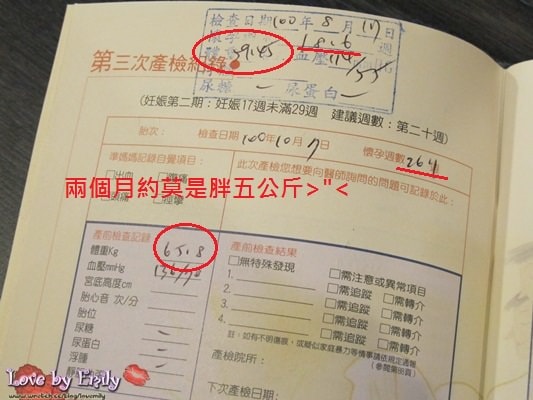 檢查日期100年8月17日
懷孕週 18.6 週
體重59.45 血壓114/55
尿糖 — 尿蛋白 —
第三次產檢紀錄
(妊娠第二期：妊娠17週未滿29週 建議週數：第二十週)
胎次： 檢查日期100年10月7日 懷孕週數26.4
準媽媽記錄自覺項目： 此次產檢您想要向醫師詢問的問題可記錄於此：
□出血 □腹痛
□頭痛 □痙攣
兩個月約莫是胖五公斤>"<
產前檢查記錄 產前檢查結果
體重Kg 65.8 □無特殊發現 □需注意或異常項目
血壓mmHg 1. □需追蹤 □需轉介
宮底高度cm 2. □需追蹤 □需轉介
胎心音 次/分 3. □需追蹤 □需轉介
胎位 4. □需追蹤 □需轉介
尿糖 —
尿蛋白 — 註：如有不明傷痕，或疑似家庭暴力等情事請依規定通報
浮腫 — 產檢院所：
下次產檢日期：
Love by Emily
www.wretch.cc/blog/lovemily